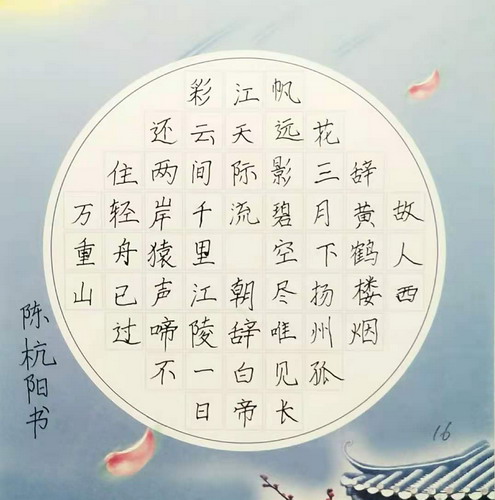 故人西
辞黄鹤楼烟
花三月下扬州孤
帆远影碧空尽唯见长
江天际流 朝辞白帝
彩云间千里江陵一日
还两岸猿声啼不
住轻舟已过
万重山
陈杭阳书
16